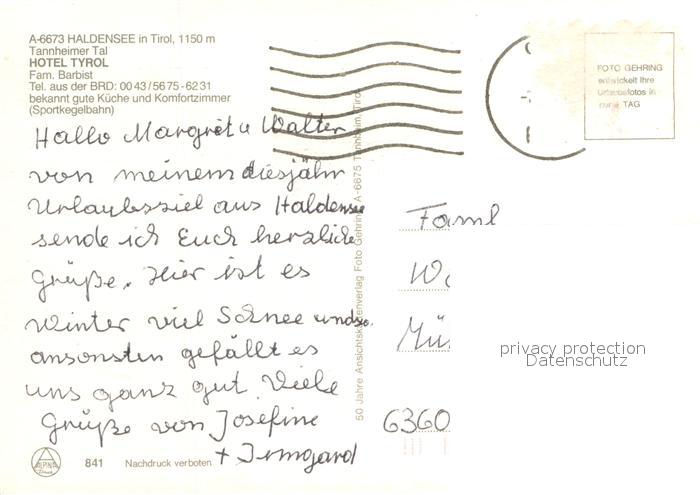 A-6673 HALDENSEE in Tirol, 1150 m
Tannheimer Tal
HOTEL TYROL
Fam. Barbist
Tel. aus der BRD: 00 43 / 56 75 - 62 31
bekannt gute Küche und Komfortzimmer
(Sportkegelbahn)
Hallo Margret u Walter
von meinem diesjähr
Urlaubsziel aus Haldensee
sende ich Euch herzliche
Grüße. Hier ist es
Winter viel Schnee und
ansonsten gefällt es
uns ganz gut. Viele
Grüße von Josefine
+ Irmgard
ALPINA
841 Nachdruck verboten
50 Jahre Ansichtskartenverlag Foto Gehring, A-6675 Tannheim, Tirol
FOTO GEHRING
entwickelt Ihre
Urlaubsfotos in
TAG
Faml
6360
privacy protection
Datenschutz